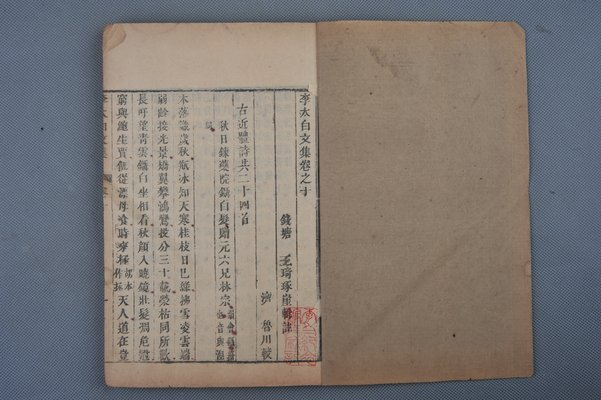 李太白文集卷之十
錢塘 王琦琢崖輯註
濟 魯川較
古近體詩共二十四首
秋日鍊藥院鑷白髮贈元六兄林宗
木落識歲秋瓶冰知天寒桂枝日已綠拂雪凌雲端
弱齡接光景矯翼攀鴻鸞投分三十載榮枯同所歡
長吁望青雲鑷白坐相看秋顏入曉鏡壯髮凋危冠
窮與鮑生賈飢從漂母餐時來極天人道在豈
李太白文集